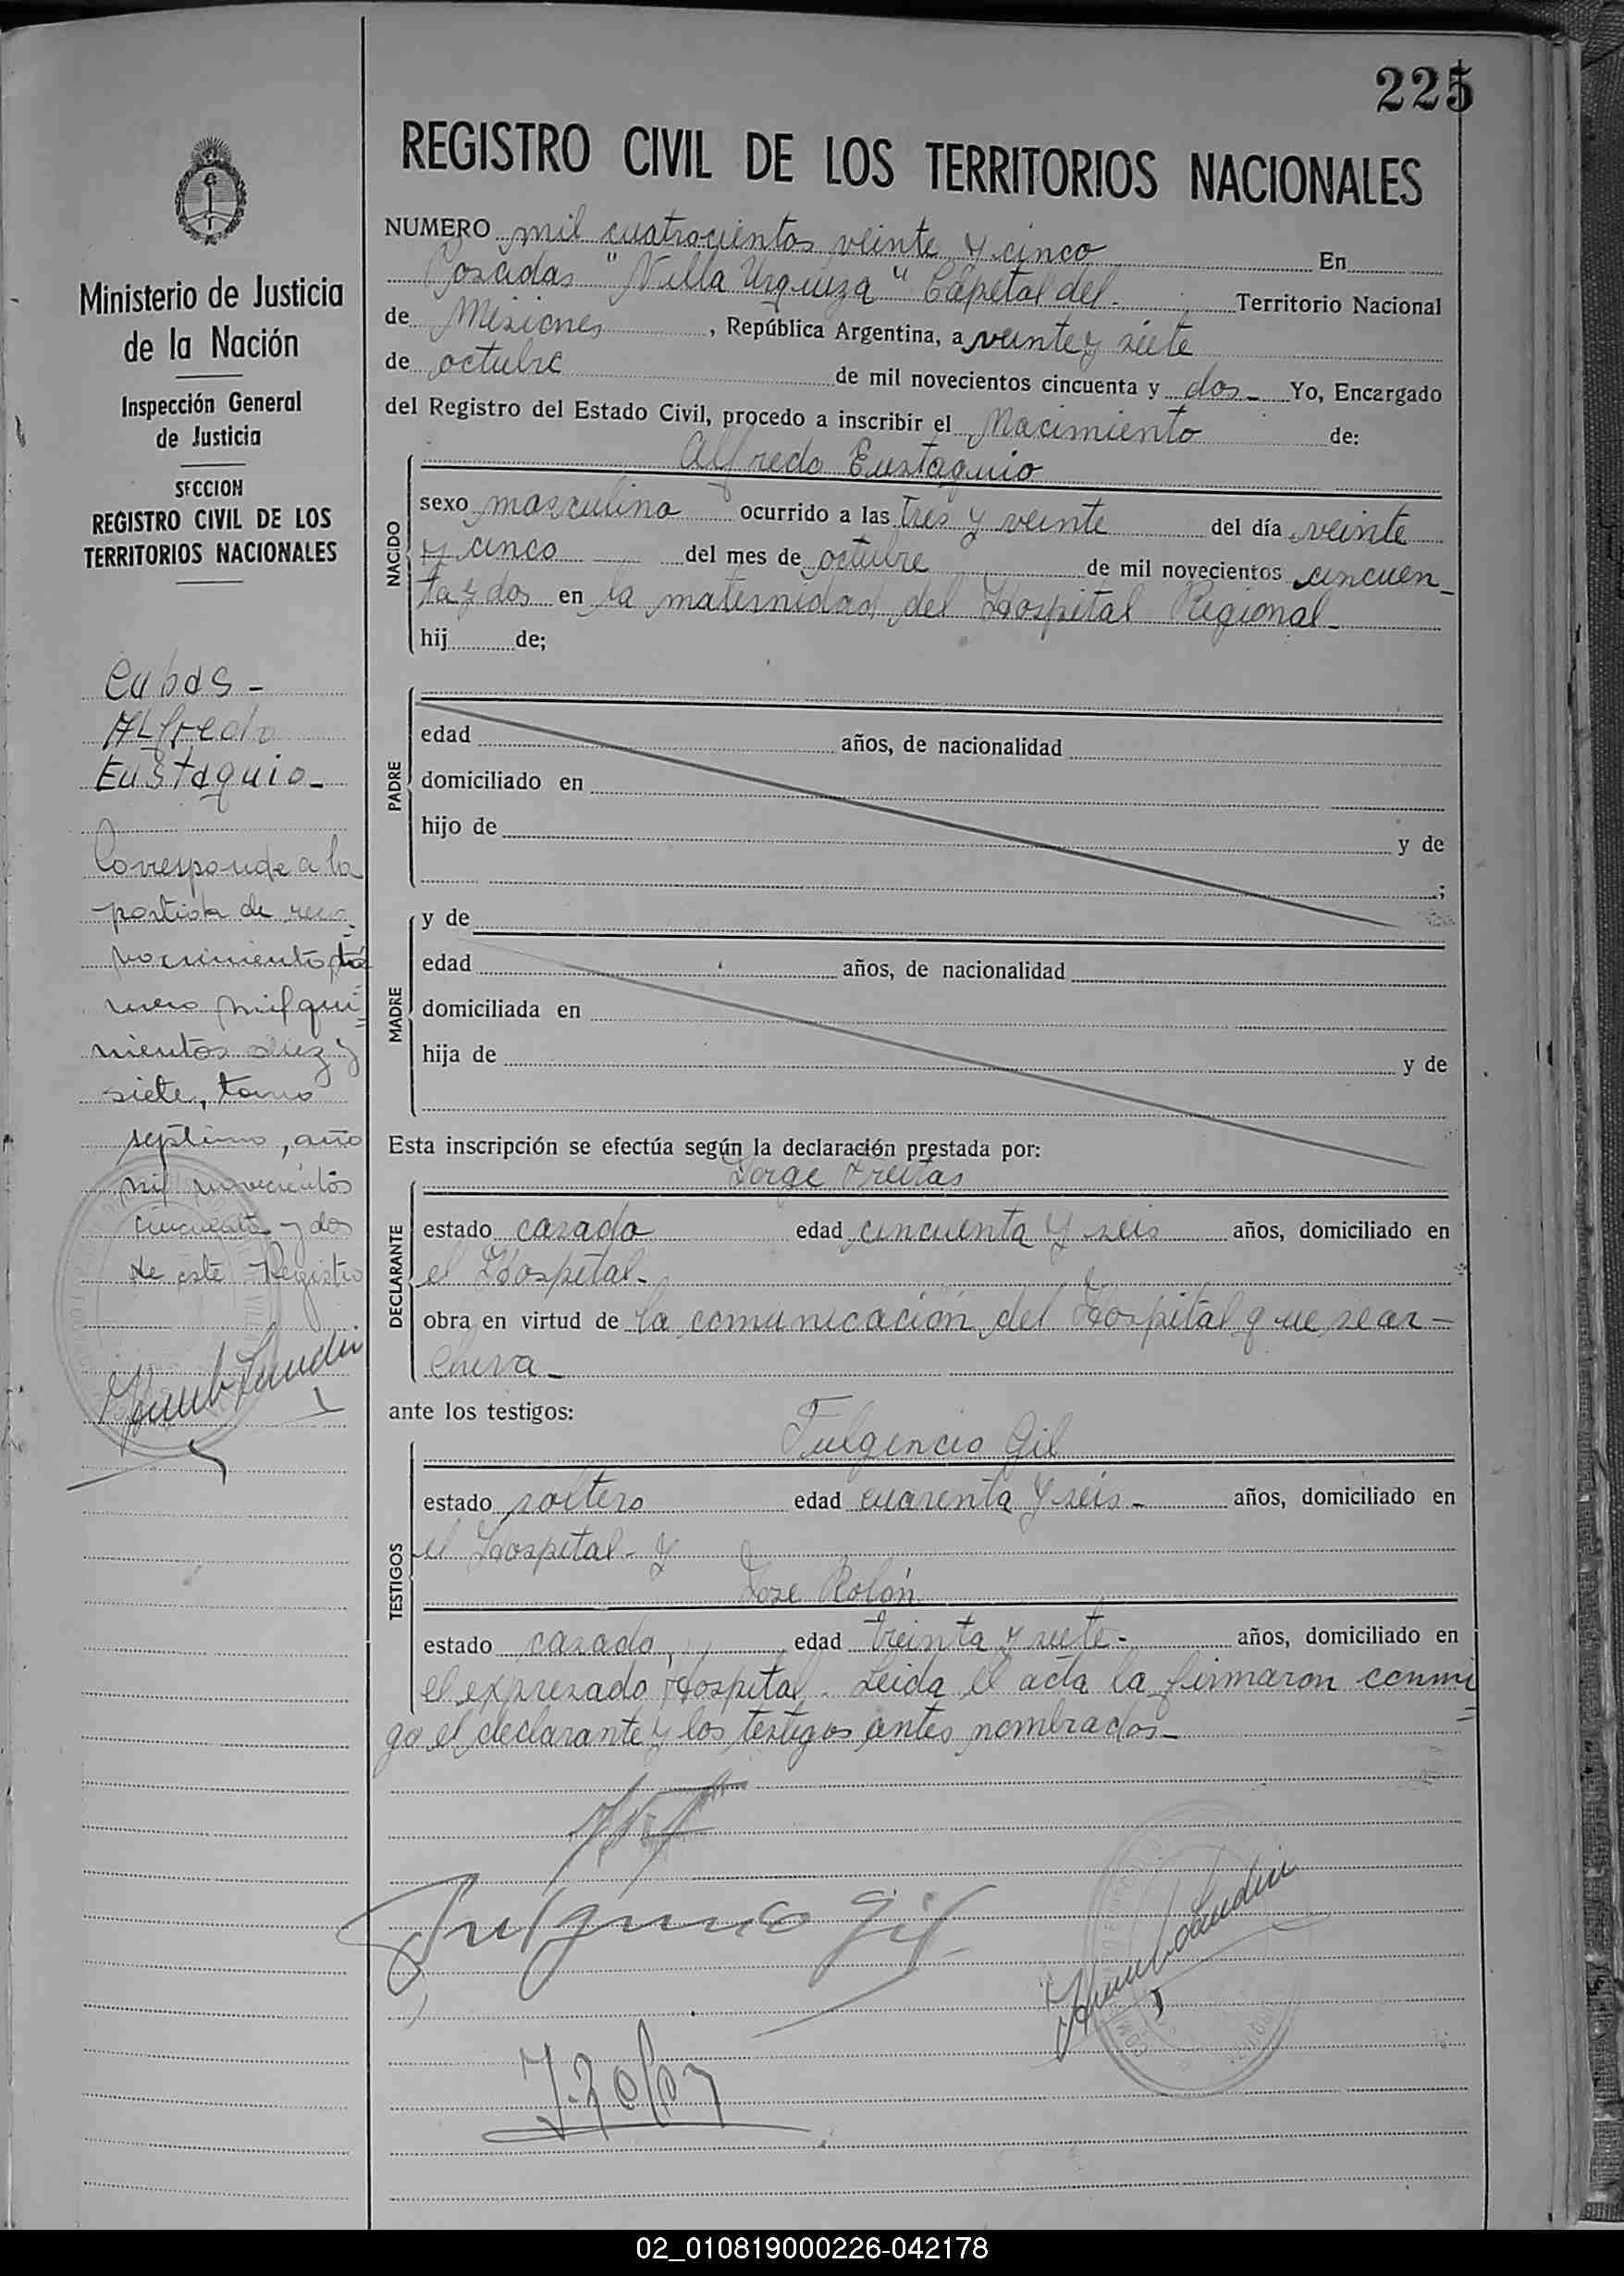 225
REGISTRO CIVIL DE LOS TERRITORIOS NACIONALES
Ministerio de Justicia
de la Nación
Inspección General
de Justicia
SECCION
REGISTRO CIVIL DE LOS
TERRITORIOS NACIONALES
Cubas -
Alfredo
Eustaquio -
Corresponde a la
partida de reco
nocimiento nú
mero mil qui
nientos diez y
siete, tomo
septimo, año
mil novecientos
cincuenta y dos
de este Registro
NUMERO mil cuatrocientos veinte y cinco En
Posadas "Villa Urquiza" Capital del Territorio Nacional
de Misiones, República Argentina, a veinte y siete
de octubre de mil novecientos cincuenta y dos - Yo, Encargado
del Registro del Estado Civil, procedo a inscribir el Nacimiento de:
Alfredo Eustaquio
NACIDO
sexo masculino ocurrido a las tres y veinte del día veinte
y cinco del mes de octubre de mil novecientos cincuen-
ta y dos en la maternidad del Hospital Regional -
hij de;
PADRE
edad años, de nacionalidad
domiciliado en
hijo de y de
;
MADRE
y de
edad años, de nacionalidad
domiciliada en
hija de y de
Esta inscripción se efectúa según la declaración prestada por:
Jorge Freitas
DECLARANTE
estado casado edad cincuenta y seis años, domiciliado en
el Hospital -
obra en virtud de la comunicación del Hospital que se ar-
chiva -
ante los testigos:
Fulgencio Gil
TESTIGOS
estado soltero edad cuarenta y seis - años, domiciliado en
el Hospital - y
Jose Rolón
estado casado, edad treinta y siete - años, domiciliado en
el expresado Hospital. Leida el acta la firmaron conmi
go el declarante y los testigos antes nombrados -
Fulgencio Gil
J. Rolon
02_010819000226-042178